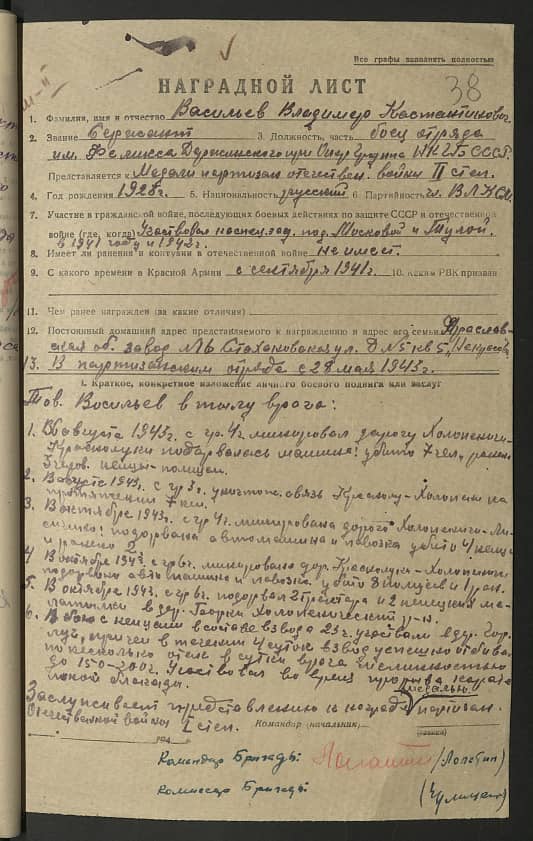 Все графы заполнять полностью
38
НАГРАДНОЙ ЛИСТ
1. Фамилия, имя и отчество Васильев Владимир
2. Звание Сержант 3. Должность, часть боец отряда
им. Феликса Дзержинского при Опер Группе НКГБ СССР.
Представляется к Медали партизан отечествен. войны II степ.
4. Год рождения 5. Национальность русский 6. Партийность чл. ВЛКСМ
7. Участие в гражданской войне, последующих боевых действиях по защите СССР и отечественной
войне (где, когда) Участвовал под Москвой и Тулой.
в 1941 году и 1942 г.
8. Имеет ли ранения и контузии в отечественной войне не имеет.
9. С какого времени в Красной Армии с сентября 1941 г. 10. Каким РВК призван
11. Чем ранее награжден (за какие отличия)
12. Постоянный домашний адрес представляемого к награждению и адрес его семьи
об. завод №6 Стахановская ул. Д №5 кв 5,
13. В партизанском отряде с 28 мая 1943 г.
I. Краткое, конкретное изложение личного боевого подвига или заслуг
Тов. Васильев в тылу врага:
1. В августе 1943 г. с гр. 4 ч. минировал дорогу Холопеничи-
подорвалась машина: убито 7 чел, ранен
немцы-полицаи.
2. В августе 1943 г. с гр 3 ч. уничтож. связь на
протяжении 7 км.
3. В октябре 1943 г. с гр 4 ч. минирована дорога
подорвана автомашина и повозка убито 4 немца
и ранено 2
4. В октябре 1943 г. с гр 6 ч. минировано дор. Холопеничи
подорвана автомашина и повозка убито немцев и 1 ран.
5. В октябре 1943 г. с гр 6 ч. подорвал 2 трактора и 2 немецких
в дер. Холопенический р-н.
6. В бою с немцами в составе взвода 23 ч. участвовал в дер.
причем в течении 4 суток взвод успешно отбивал
по несколько атак в сутки врага численностью
до 150-200 ч. Участвовал во время прорыва
блокады.
Заслуживает представлению к награде медалью партизан.
Отечественной войны II степ.
Командир (начальник)
194
Командир Бригады: /Лопатин/
Комиссар Бригады